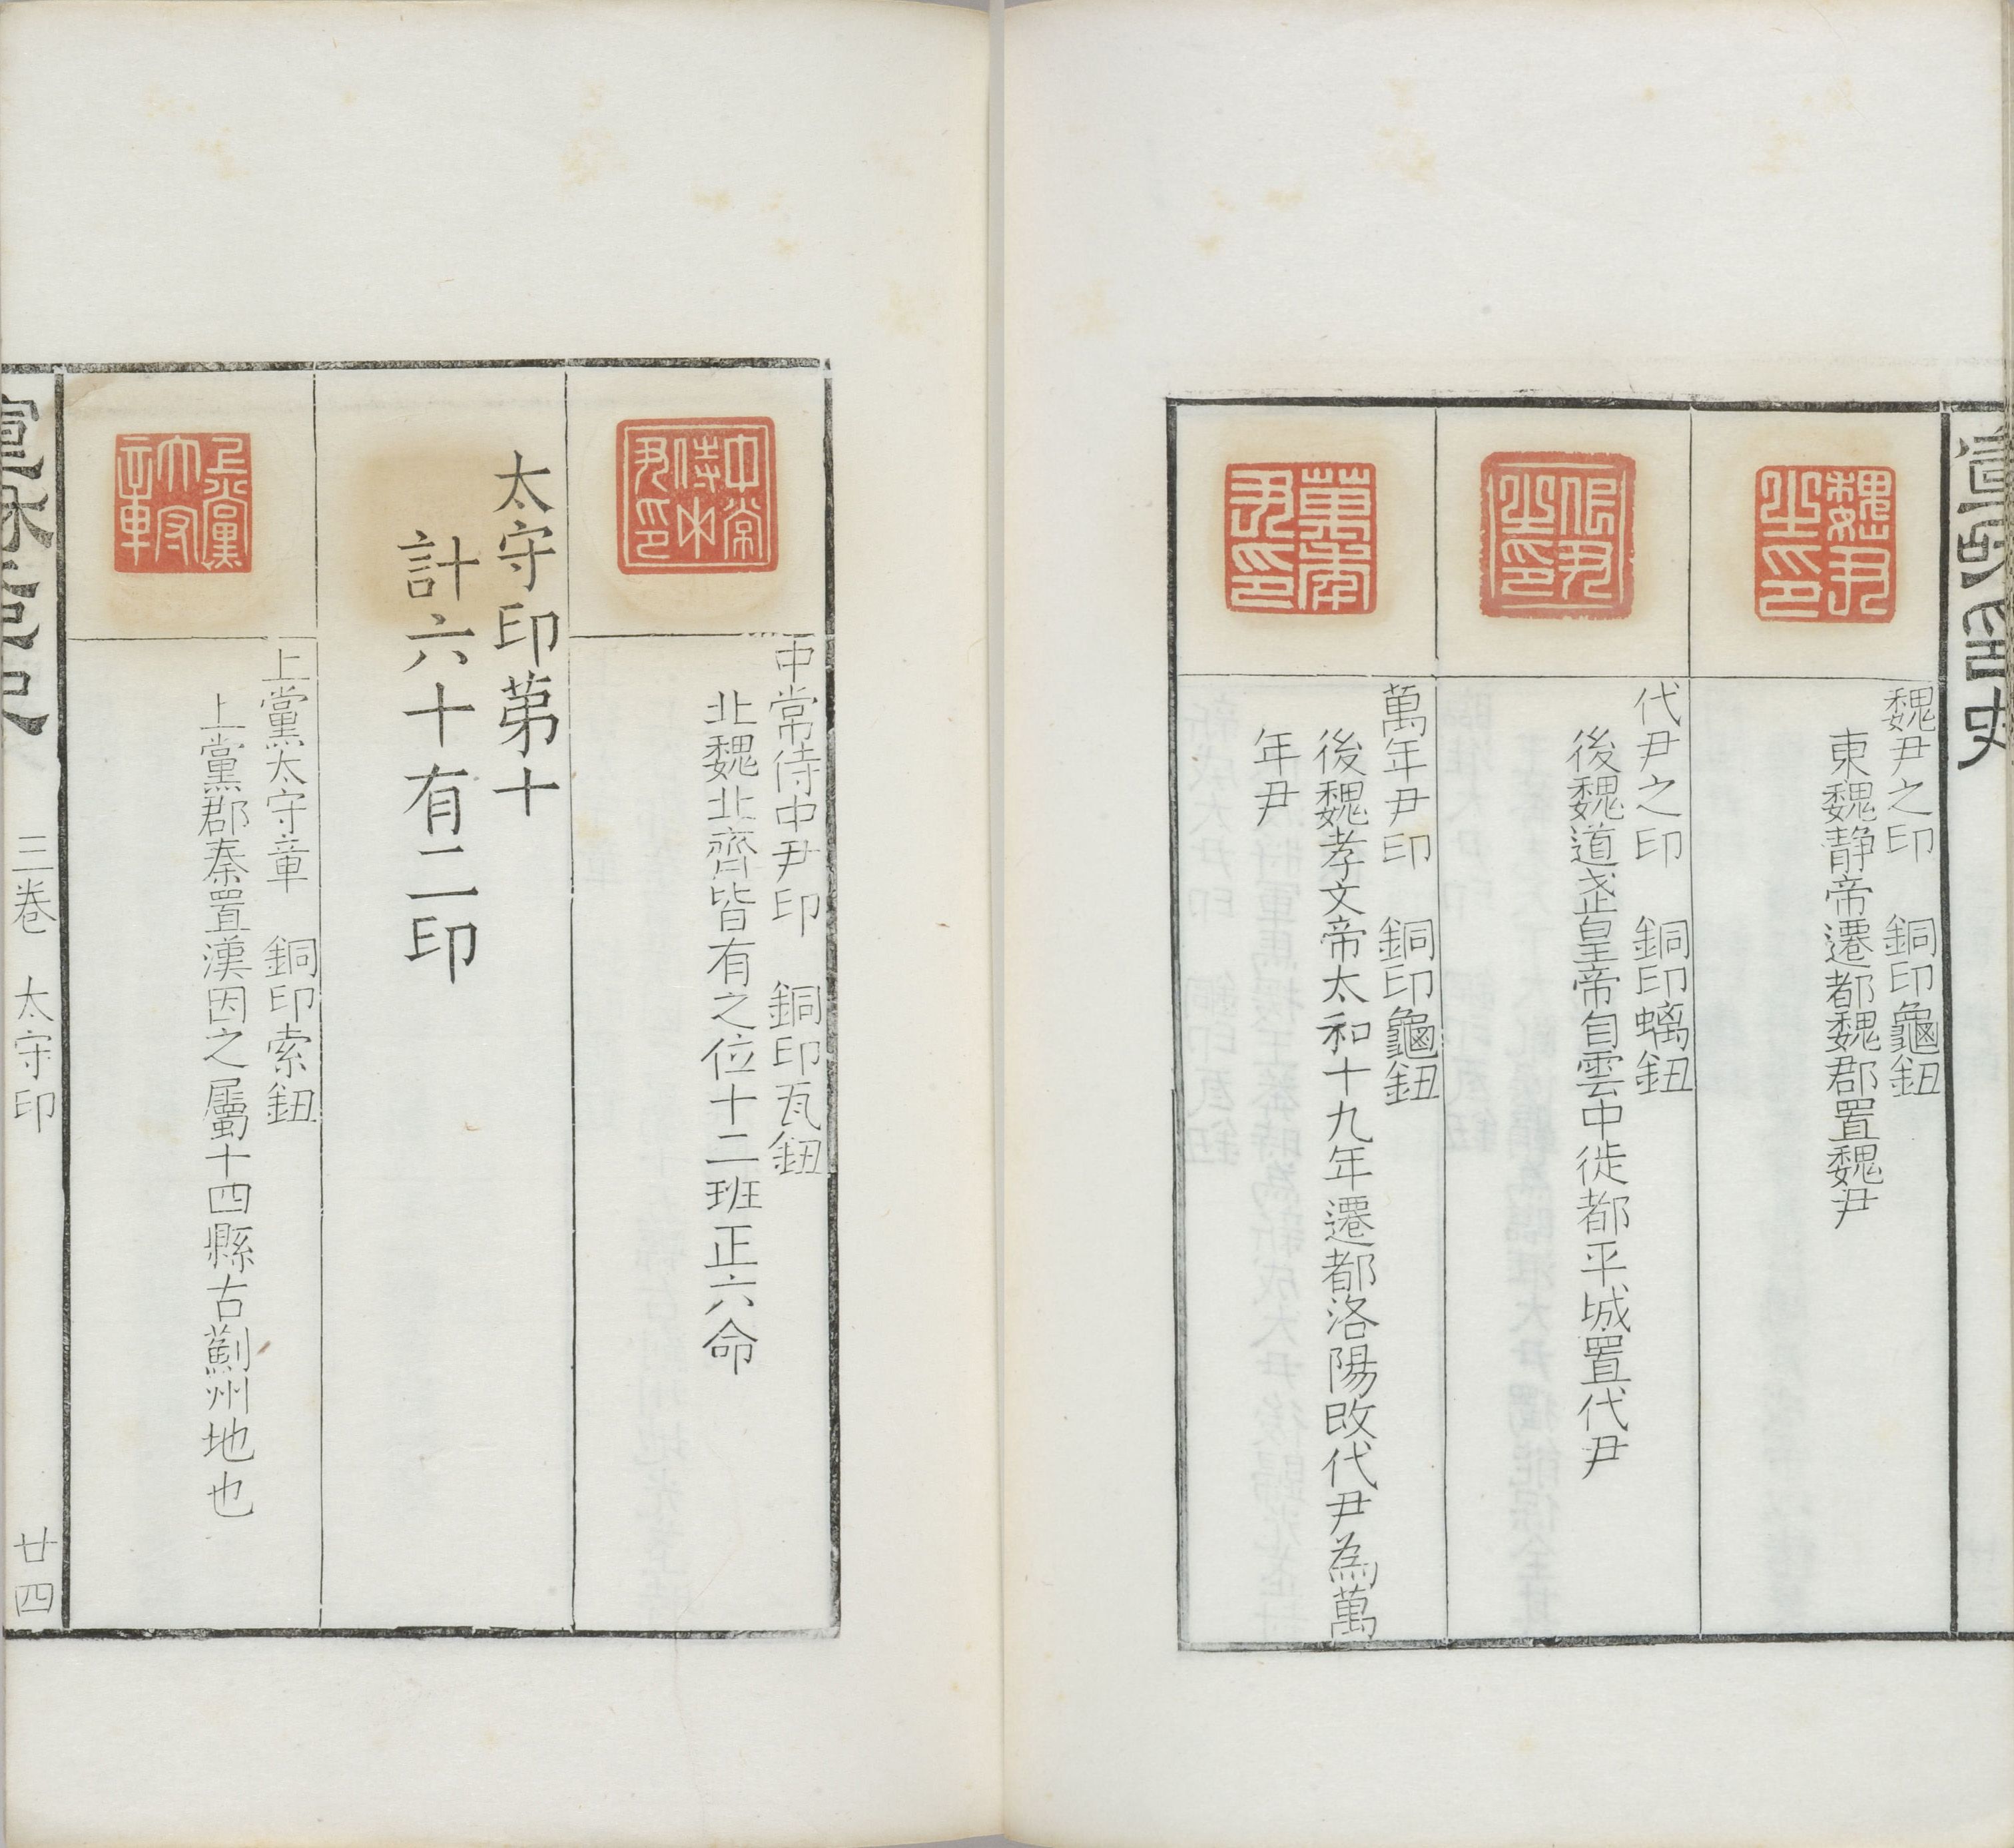 魏尹之印
魏尹之印　銅印龜鈕
東魏靜帝遷都魏郡置魏尹
代尹之印
代尹之印　銅印螭鈕
後魏道武皇帝自雲中徙都平城置代尹
萬年尹印
萬年尹印　銅印龜鈕
後魏孝文帝太和十九年遷都洛陽改代尹為萬
年尹
中常侍中尹印
中常侍中尹印　銅印瓦鈕
北魏北齊皆有之位十二班正六命
太守印苐十
計六十有二印
上黨太守章
上黨太守章　銅印索鈕
上黨郡秦置漢因之屬十四縣古薊州地也
三卷　太守印　廿四